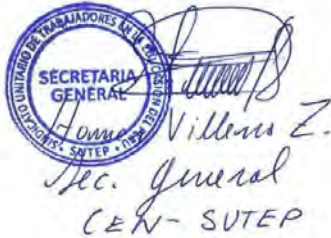 SINDICATO UNITARIO DE TRABAJADORES EN LA EDUCACION DEL PERU
SECRETARIA
GENERAL
• SUTEP •
Villens Z.
Sec. General
CEN - SUTEP